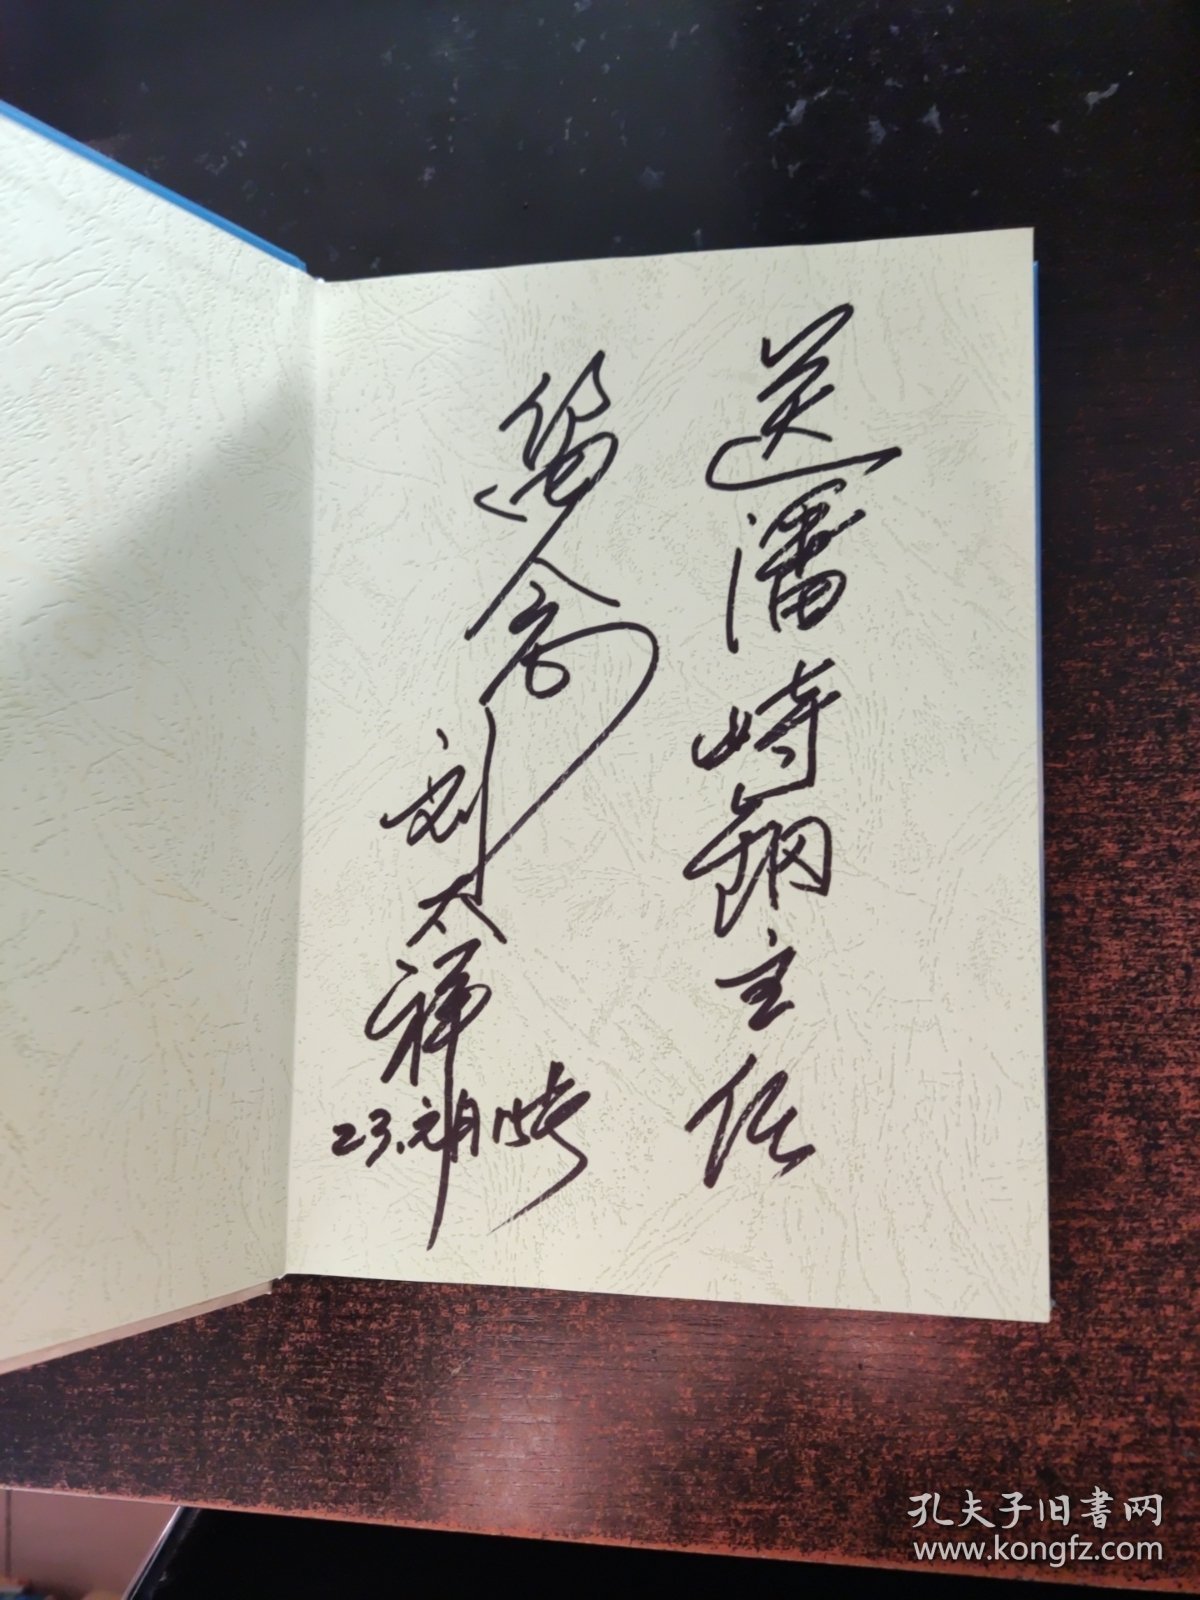 送潘峙钢主任
留念
刘大祥
23.元月15号
孔夫子旧書网
www.kongfz.com